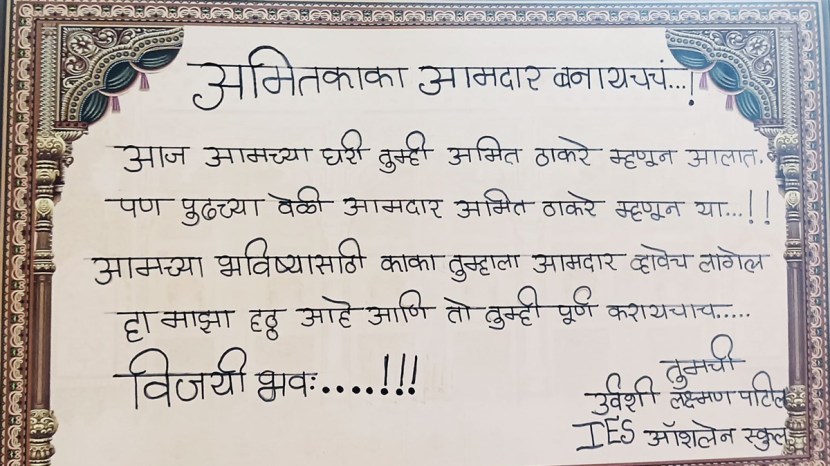 अमितकाका आमदार बनायचचं...!
आज आमच्या घरी तुम्ही अमित ठाकरे म्हणून आलात.
पण पुढच्या वेळी आमदार अमित ठाकरे म्हणून या...!!
आमच्या भविष्यासाठी काका तुम्हाला आमदार व्हावेच लागेल
हा माझा हट्ट आहे आणि तो तुम्ही पूर्ण करायचाच.....
विजयी भवः....!!!
तुमची
उर्वशी लक्ष्मण पाटिल
IES ऑशलेन स्कुल